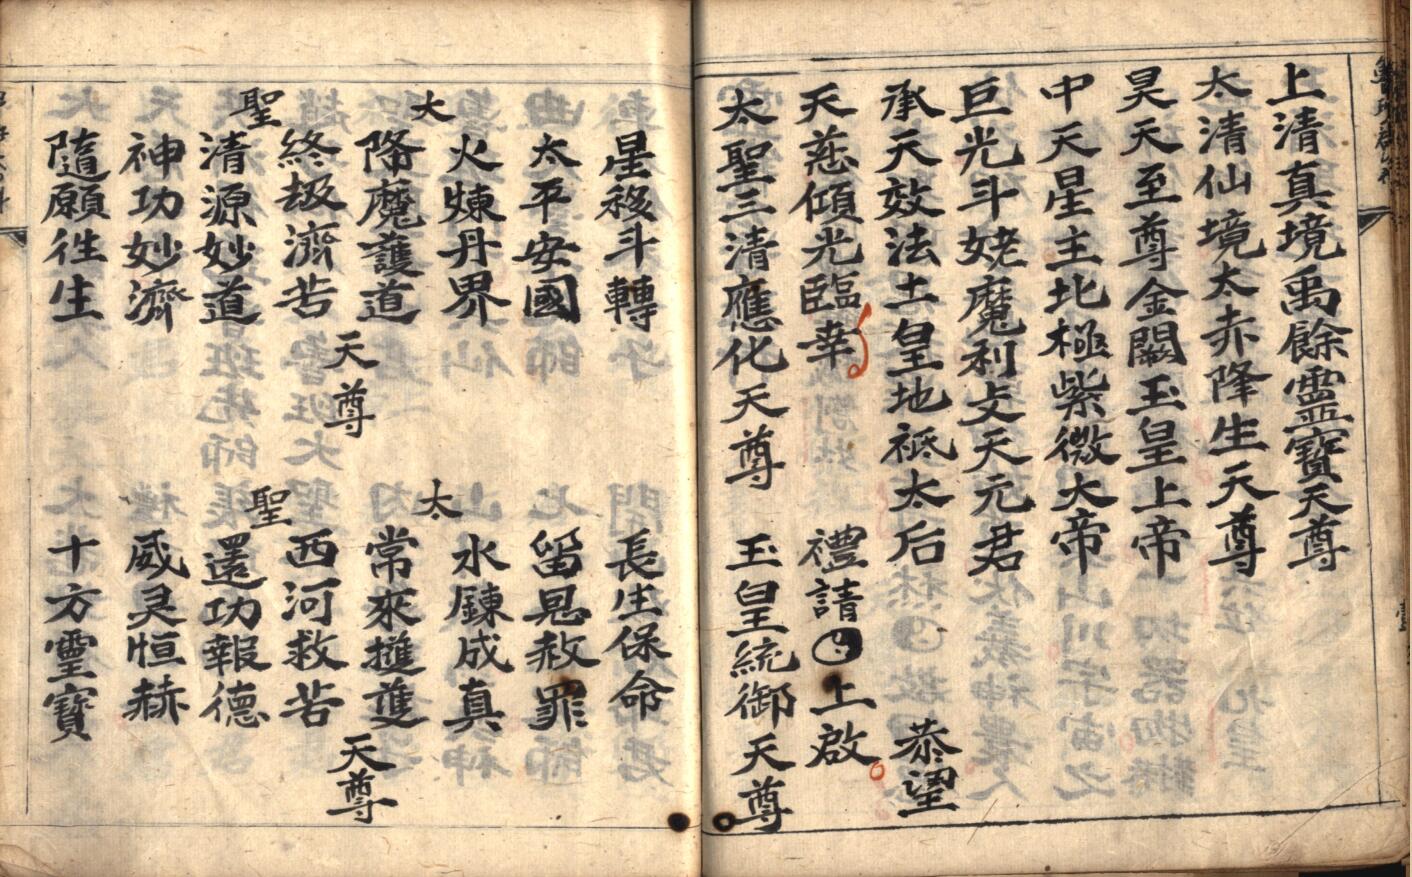 上清真境禹餘靈寶天尊
太清仙境太赤降生天尊
昊天至尊金闕玉皇上帝
中天星主北極紫微大帝
巨光斗姥魔利攴天元君
承天效法土皇地祇太后 恭望
天慈傾光臨幸 禮請 上啟
太聖三清應化天尊 玉皇統御天尊
星移斗轉 長生保命
太平安國 留恩赦罪
火煉丹界 水鍊成真
大 太
降魔護道 常來擁護
天尊 天尊
終劫濟苦 西河救苦
聖 聖
清源妙道 還功報德
神功妙濟 威灵恒赫
隨願往生 十方靈寶